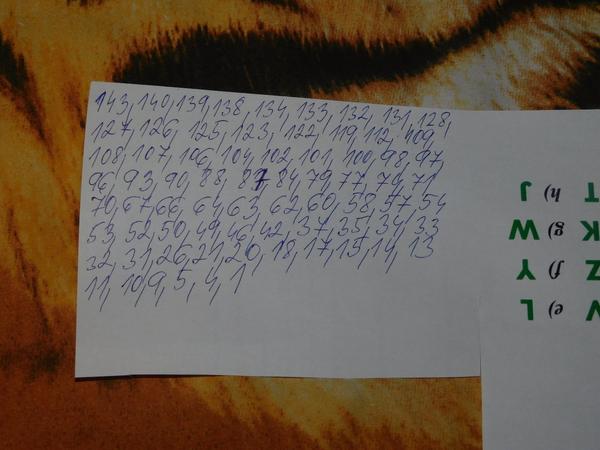 143, 140, 139, 138, 134, 133, 132, 131, 128,
127, 126, 125, 123, 122, 119, 112, 109,
108, 107, 106, 104, 102, 101, 100, 98, 97,
96, 93, 90, 88, 87, 84, 79, 77, 74, 71
70, 67, 66, 64, 63, 62, 60, 58, 57, 54
53, 52, 50, 49, 46, 42, 37, 35, 34, 33
32, 31, 26, 21, 20, 18, 17, 15, 14, 13
11, 10, 9, 5, 4, 1
V e) L
Z f) Y
K g) W
T h) J